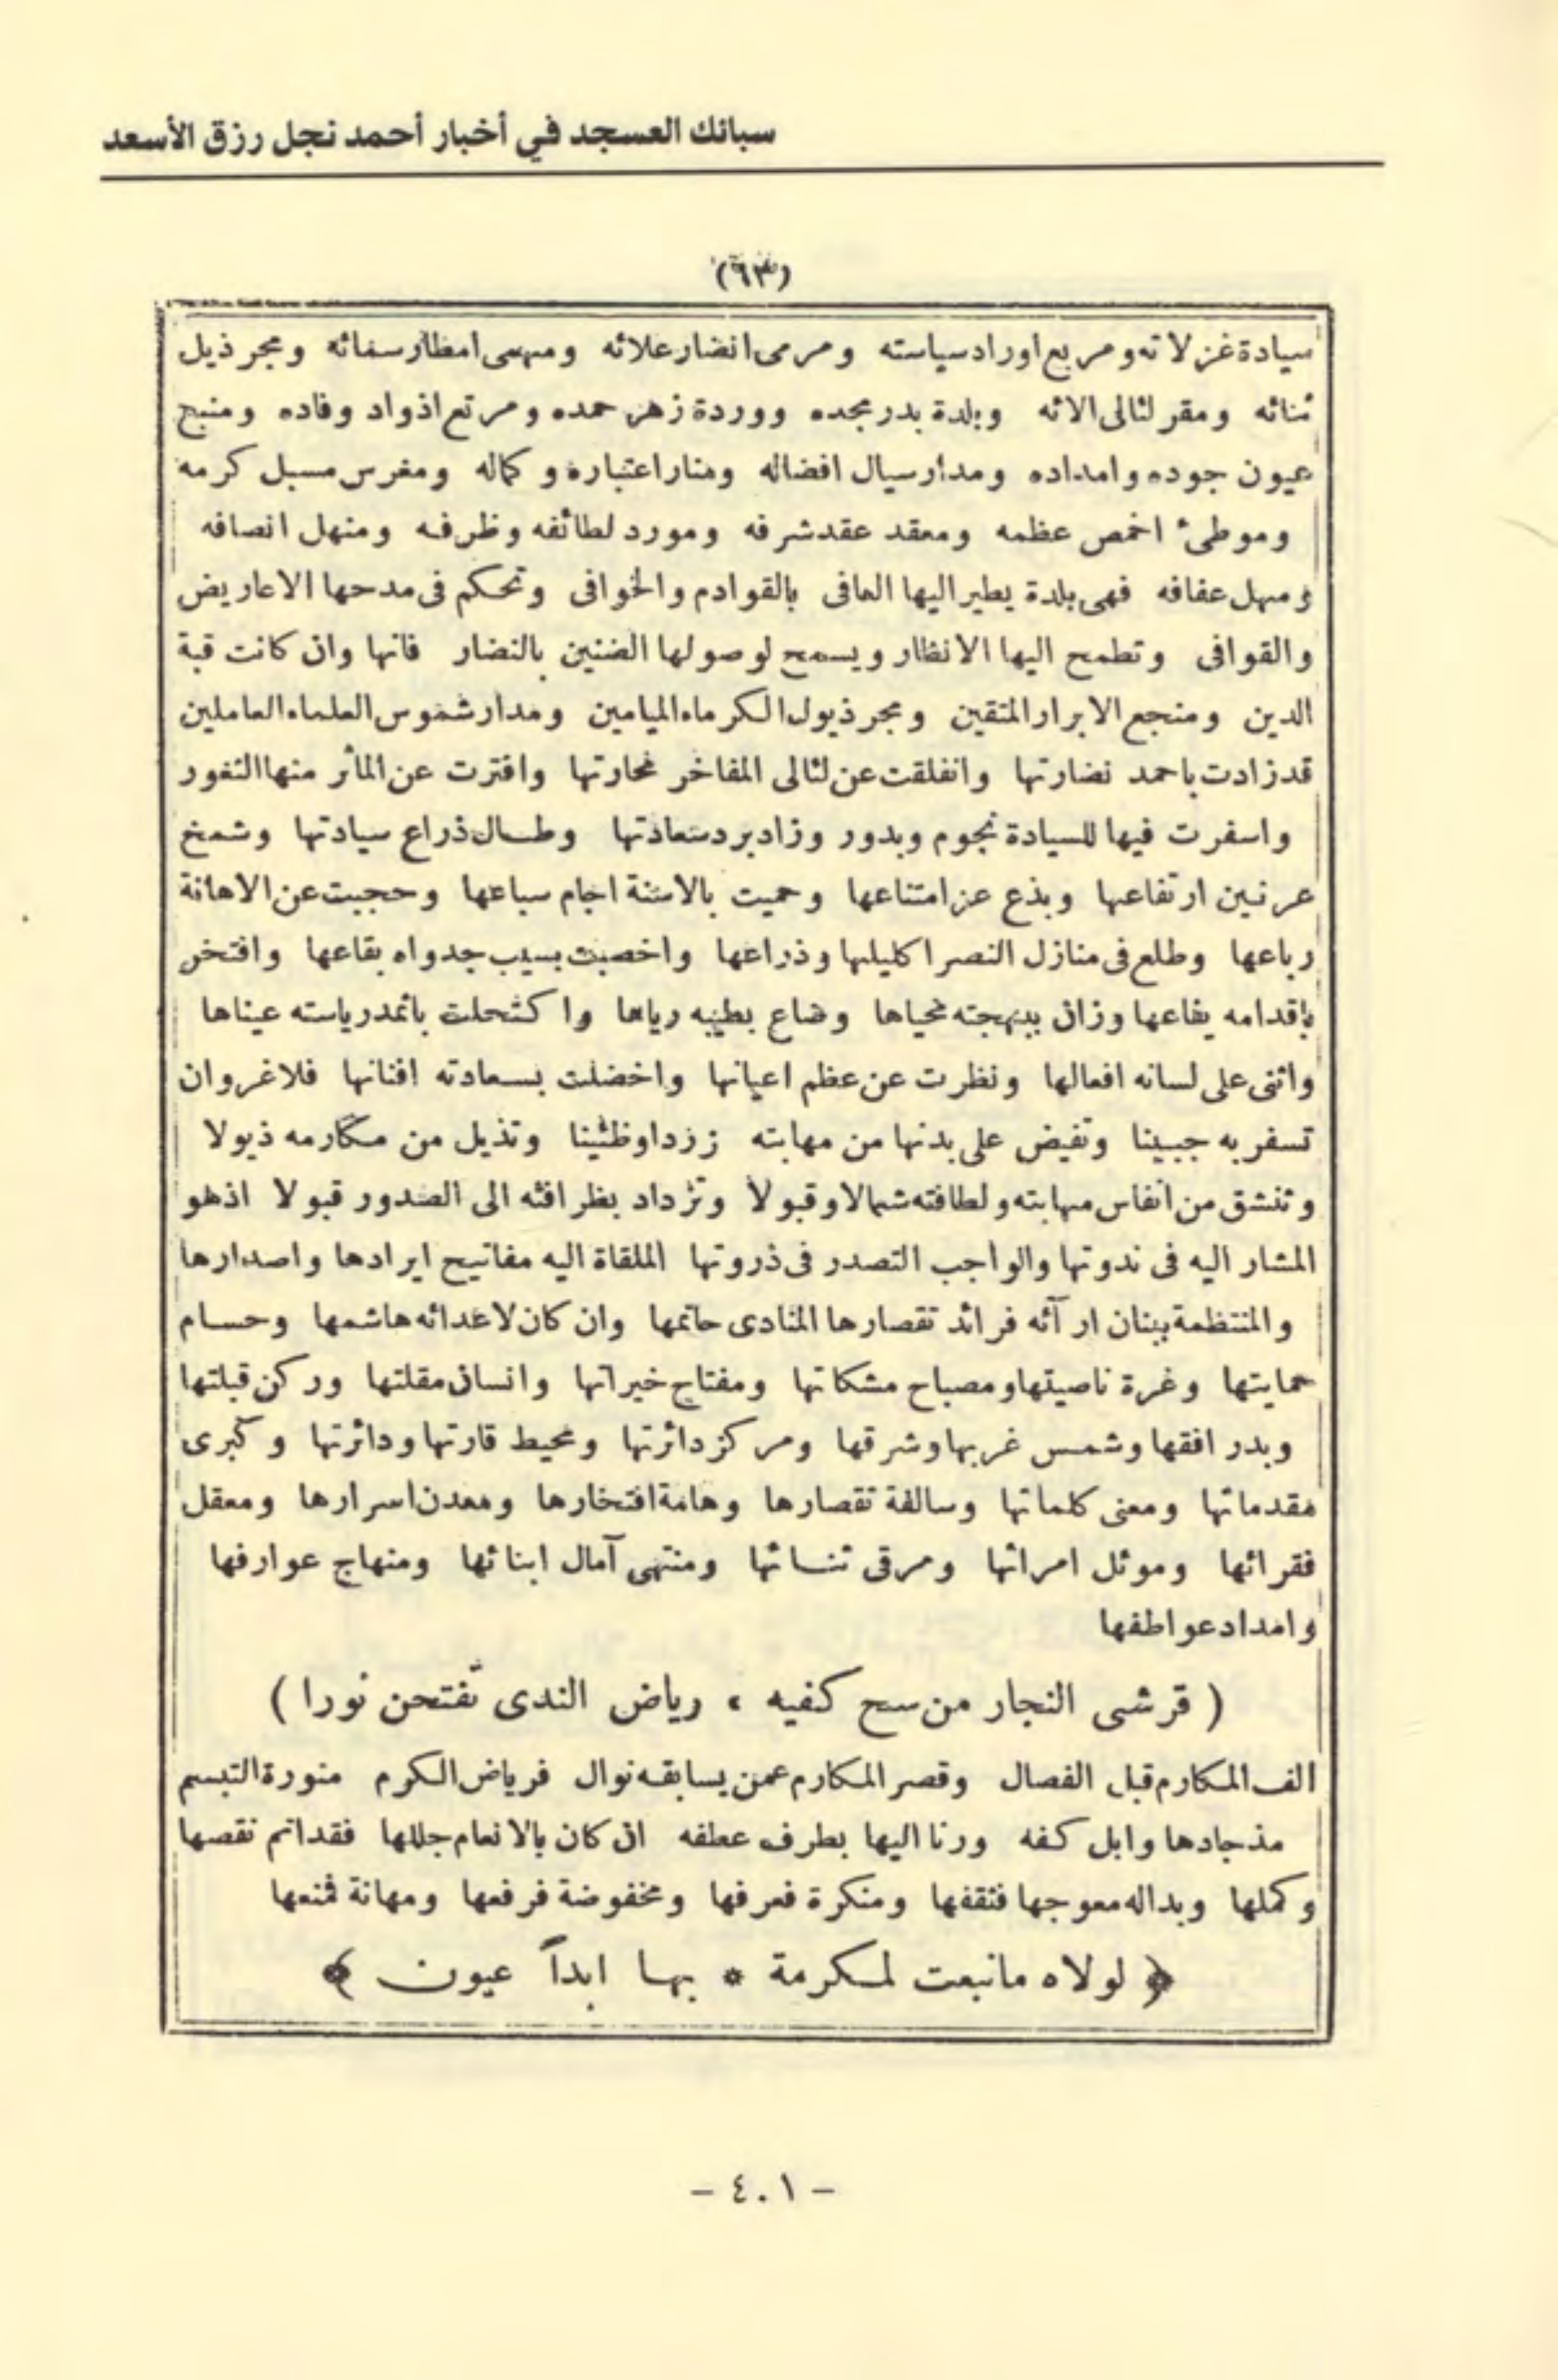 سبائك العسجد في أخبار أحمد نجل رزق الأسعد
(٦٣)
سيادة غزلاته ومربع اوراد سياسته ومرمى انضار علائه ومهمى امطار سمائه ومجر ذيل
ثنائه ومقر لئالى الائه وبلدة بدر مجده ووردة زهر حمده ومرتع اذواد وفاده ومنبع
عيون جوده وامداده ومدار سيال افضاله ومنار اعتباره وكماله ومغرس مسبل كرمه
وموطئ اخمص عظمه ومعقد عقد شرفه ومورد لطائفه وظرفه ومنهل انصافه
ومهل عفافه فهى بلدة يطير اليها العافى بالقوادم والخوافى وتحكم فى مدحها الاعاريض
والقوافى وتطمح اليها الانظار ويسمح لوصولها الضنين بالنضار فانها وان كانت قبة
الدين ومنجع الابرار المتقين ومجر ذيول الكرماء الميامين ومدار شموس العلماء العاملين
قد زادت باحمد نضارتها وانفلقت عن لئالى المفاخر محارتها وافترت عن المأثر منها الثغور
واسفرت فيها للسيادة نجوم وبدور وزاد برد سعادتها وطال ذراع سيادتها وشمخ
عرنين ارتفاعها وبذع عز امتناعها وحميت بالاسنة اجام سباعها وحجبت عن الاهانة
رباعها وطلع فى منازل النصر اكليلها وذراعها واخصبت بسيب جدواه بقاعها وافتخر
باقدامه يفاعها وزان ببهجته محياها وضاع بطيبه رياها واكتحلت باثمد رياسته عيناها
واثنى على لسانه افعالها ونظرت عن عظم اعيانها واخضلت بسعادته افنانها فلاغروان
تسفر به جبينا وتفيض على بدنها من مهابته زردا وظئينا وتذيل من مكارمه ذيولا
وتنشق من انفاس مهابته ولطافته شمالا وقبولا وتزداد بظرافته الى الصدور قبولا اذهو
المشار اليه فى ندوتها والواجب التصدر فى ذروتها الملقاة اليه مفاتيح ايرادها واصدارها
والمنتظمة ببنان ارآئه فرائد تقصارها المنادى حاتمها وان كان لاعدائه هاشمها وحسام
حمايتها وغرة ناصيتها ومصباح مشكاتها ومفتاح خيراتها وانسان مقلتها وركن قبلتها
وبدر افقها وشمس غربها وشرقها ومركز دائرتها ومحيط قارتها ودائرتها وكبرى
مقدماتها ومعنى كلماتها وسالفة تقصارها وهامة افتخارها ومعدن اسرارها ومعقل
فقرائها وموئل امرائها ومرقى ثنائها ومنتهى آمال ابنائها ومنهاج عوارفها
وامداد عواطفها
( قرشى النجار من سح كفيه ، رياض الندى تفتحن نورا )
الف المكارم قبل الفصال وقصر المكارم عمن يسابقه نوال فرياض الكرم منورة التبسم
مذ جادها وابل كفه ورنا اليها بطرف عطفه ان كان بالانعام جللها فقد اتم نقصها
وكملها وبداله معوجها فثقفها ومنكرة فعرفها ومخفوضة فرفعها ومهانة فمنعها
﴿ لولاه مانبعت لمكرمة * بها ابداً عيون ﴾
- ٤٠١ -